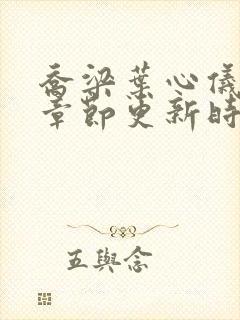 乔梁葉心儀
章節更新時
五與念